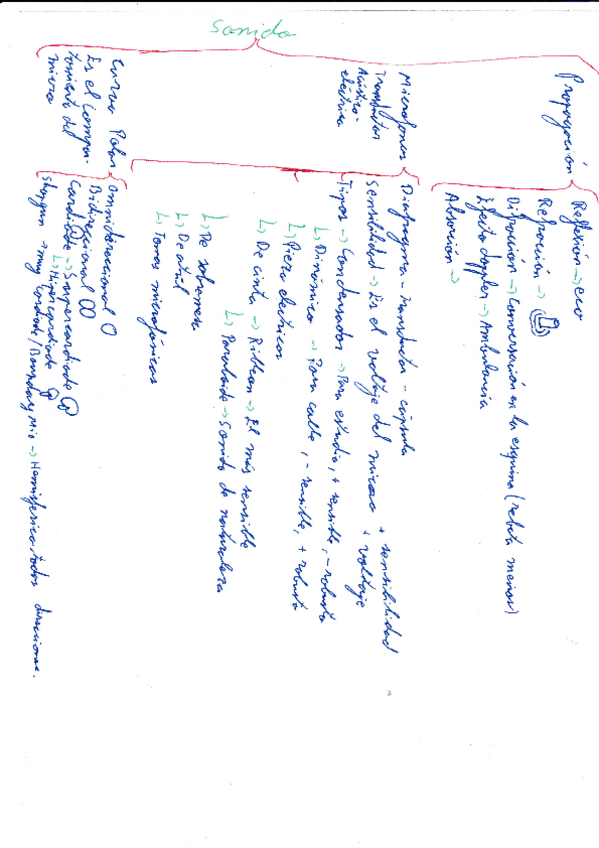 Sonido
Propagación
Reflexión → eco
Refracción →
Difracción → Conversación en la esquina (rebota menos)
Efecto doppler → Ambulancia
Absorción →
Microfonos
Transductor
Acústico-
eléctrico
Diafragma - transductor - cápsula
Sensibilidad → Es el voltaje del micro + sensibilidad + voltaje
Tipos → Condensador → Para estudio, + sensible, - robusto
↳ Dinámico → Para calle, - sensible, + robusto
↳ Piezo electricos
↳ De cinta → Ribbon → El más sensible
↳ Parabolide → Sonido de naturaleza
↳ De sobremesa
↳ De atril
↳ Tomas microfónicas
Curva Polar
Es el compor-
tamiento del
micro
Omnidireccional O
Bidireccional OO
Cardioide → Supercardioide
↳ Hipercardioide
shotgun → muy cardioide / Boundary Mic → Hemisferico todas direcciones.